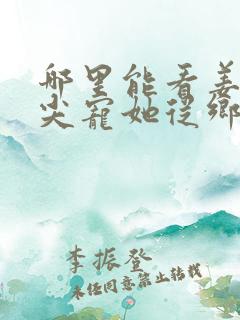 哪里能看姜
尖寵她從鄉
李振登
未任同意禁止转载